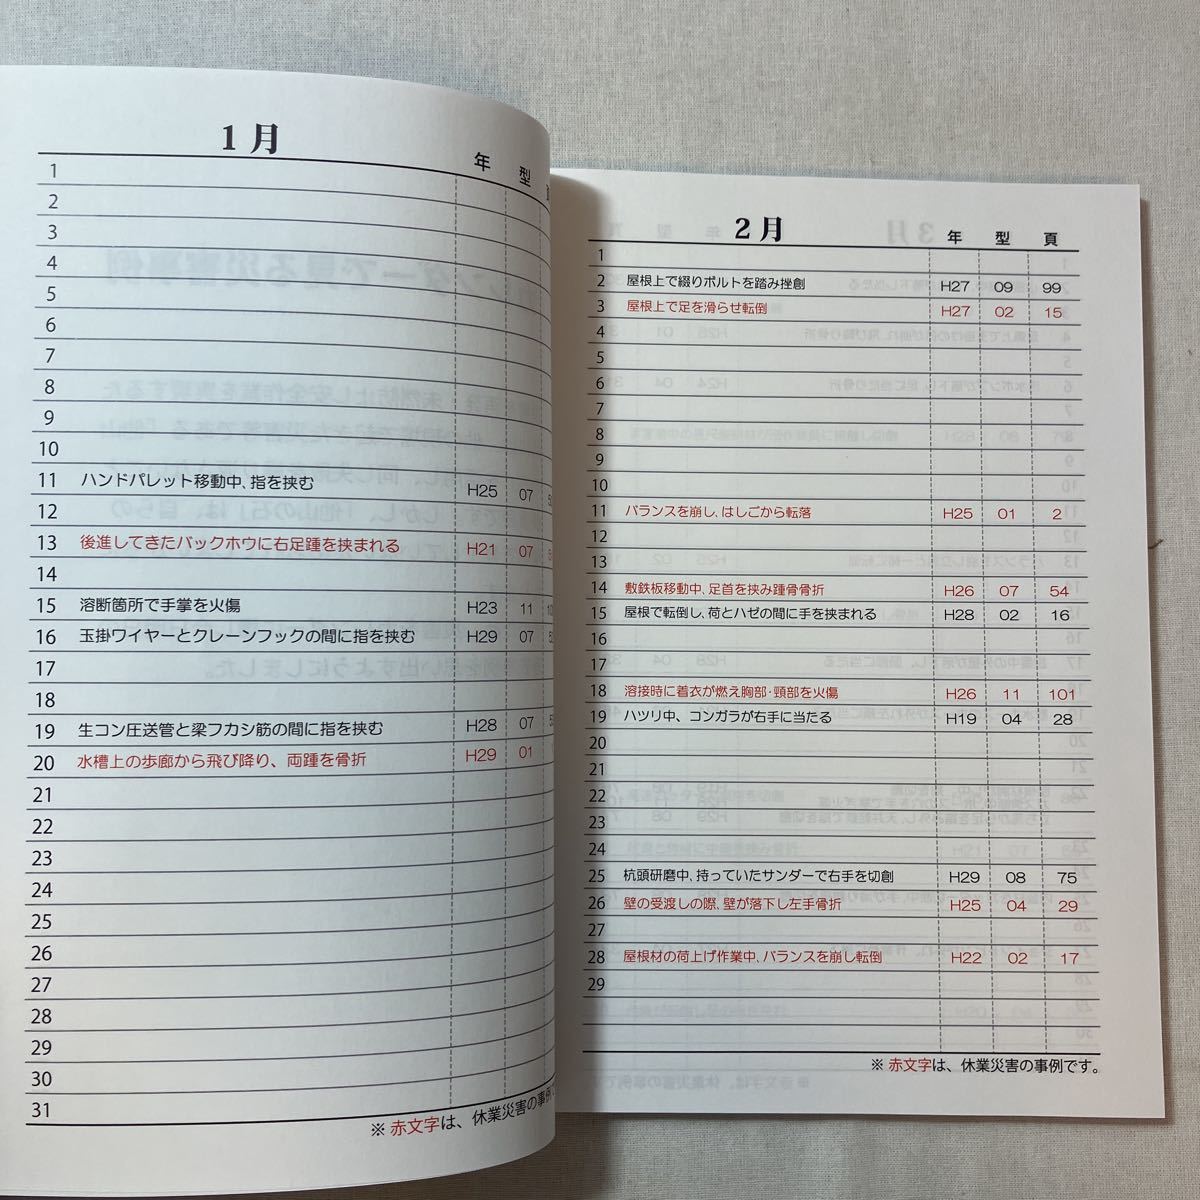 1月
年 型
1
2
3
4
5
6
7
8
9
10
11 ハンドパレット移動中、指を挟む H25 07
12
13 後進してきたバックホウに右足踵を挟まれる H21 07
14
15 溶断箇所で手掌を火傷 H23 11
16 玉掛ワイヤーとクレーンフックの間に指を挟む H29 07
17
18
19 生コン圧送管と梁フカシ筋の間に指を挟む H28 07
20 水槽上の歩廊から飛び降り、両踵を骨折 H29 01
21
22
23
24
25
26
27
28
29
30
31
※ 赤文字は、休業災害の事例
2月
年 型 頁
1
2 屋根上で綴りボルトを踏み挫創 H27 09 99
3 屋根上で足を滑らせ転倒 H27 02 15
4
5
6
7
8
9
10
11 バランスを崩し、はしごから転落 H25 01 2
12
13
14 敷鉄板移動中、足首を挟み踵骨骨折 H26 07 54
15 屋根で転倒し、荷とハゼの間に手を挟まれる H28 02 16
16
17
18 溶接時に着衣が燃え胸部・頸部を火傷 H26 11 101
19 ハツリ中、コンガラが右手に当たる H19 04 28
20
21
22
23
24
25 杭頭研磨中、持っていたサンダーで右手を切創 H29 08 75
26 壁の受渡しの際、壁が落下し左手骨折 H25 04 29
27
28 屋根材の荷上げ作業中、バランスを崩し転倒 H22 02 17
29
※ 赤文字は、休業災害の事例です。